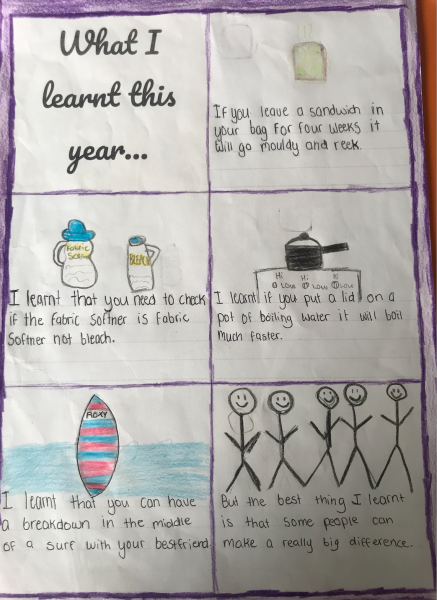 What I
learnt this
year...
If you leave a sandwich in
your bag for four weeks it
will go mouldy and reek.
Fabric
BLEACH
I learnt that you need to check
if the fabric Softner is Fabric
Softner not bleach.
Hi Hi
Low Low Low
I learnt if you put a lid on a
pot of boiling water it will boil
much faster.
ROXY
I learnt that you can have
a breakdown in the middle
of a surf with your bestfriend
But the best thing I learnt
is that some people can
make a really big difference.